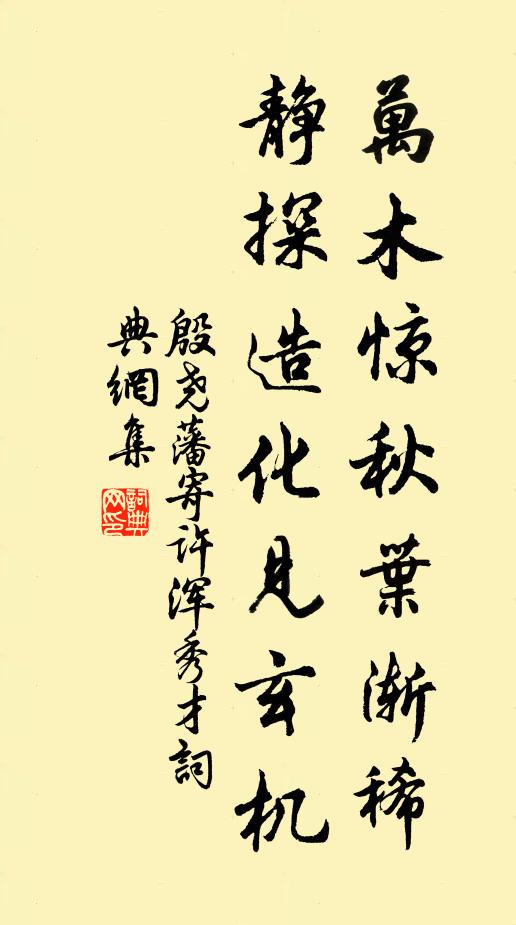 萬木惊秋葉渐稀
静探造化見玄机
殷尧藩寄许浑秀才詞
典網集
詞典網印